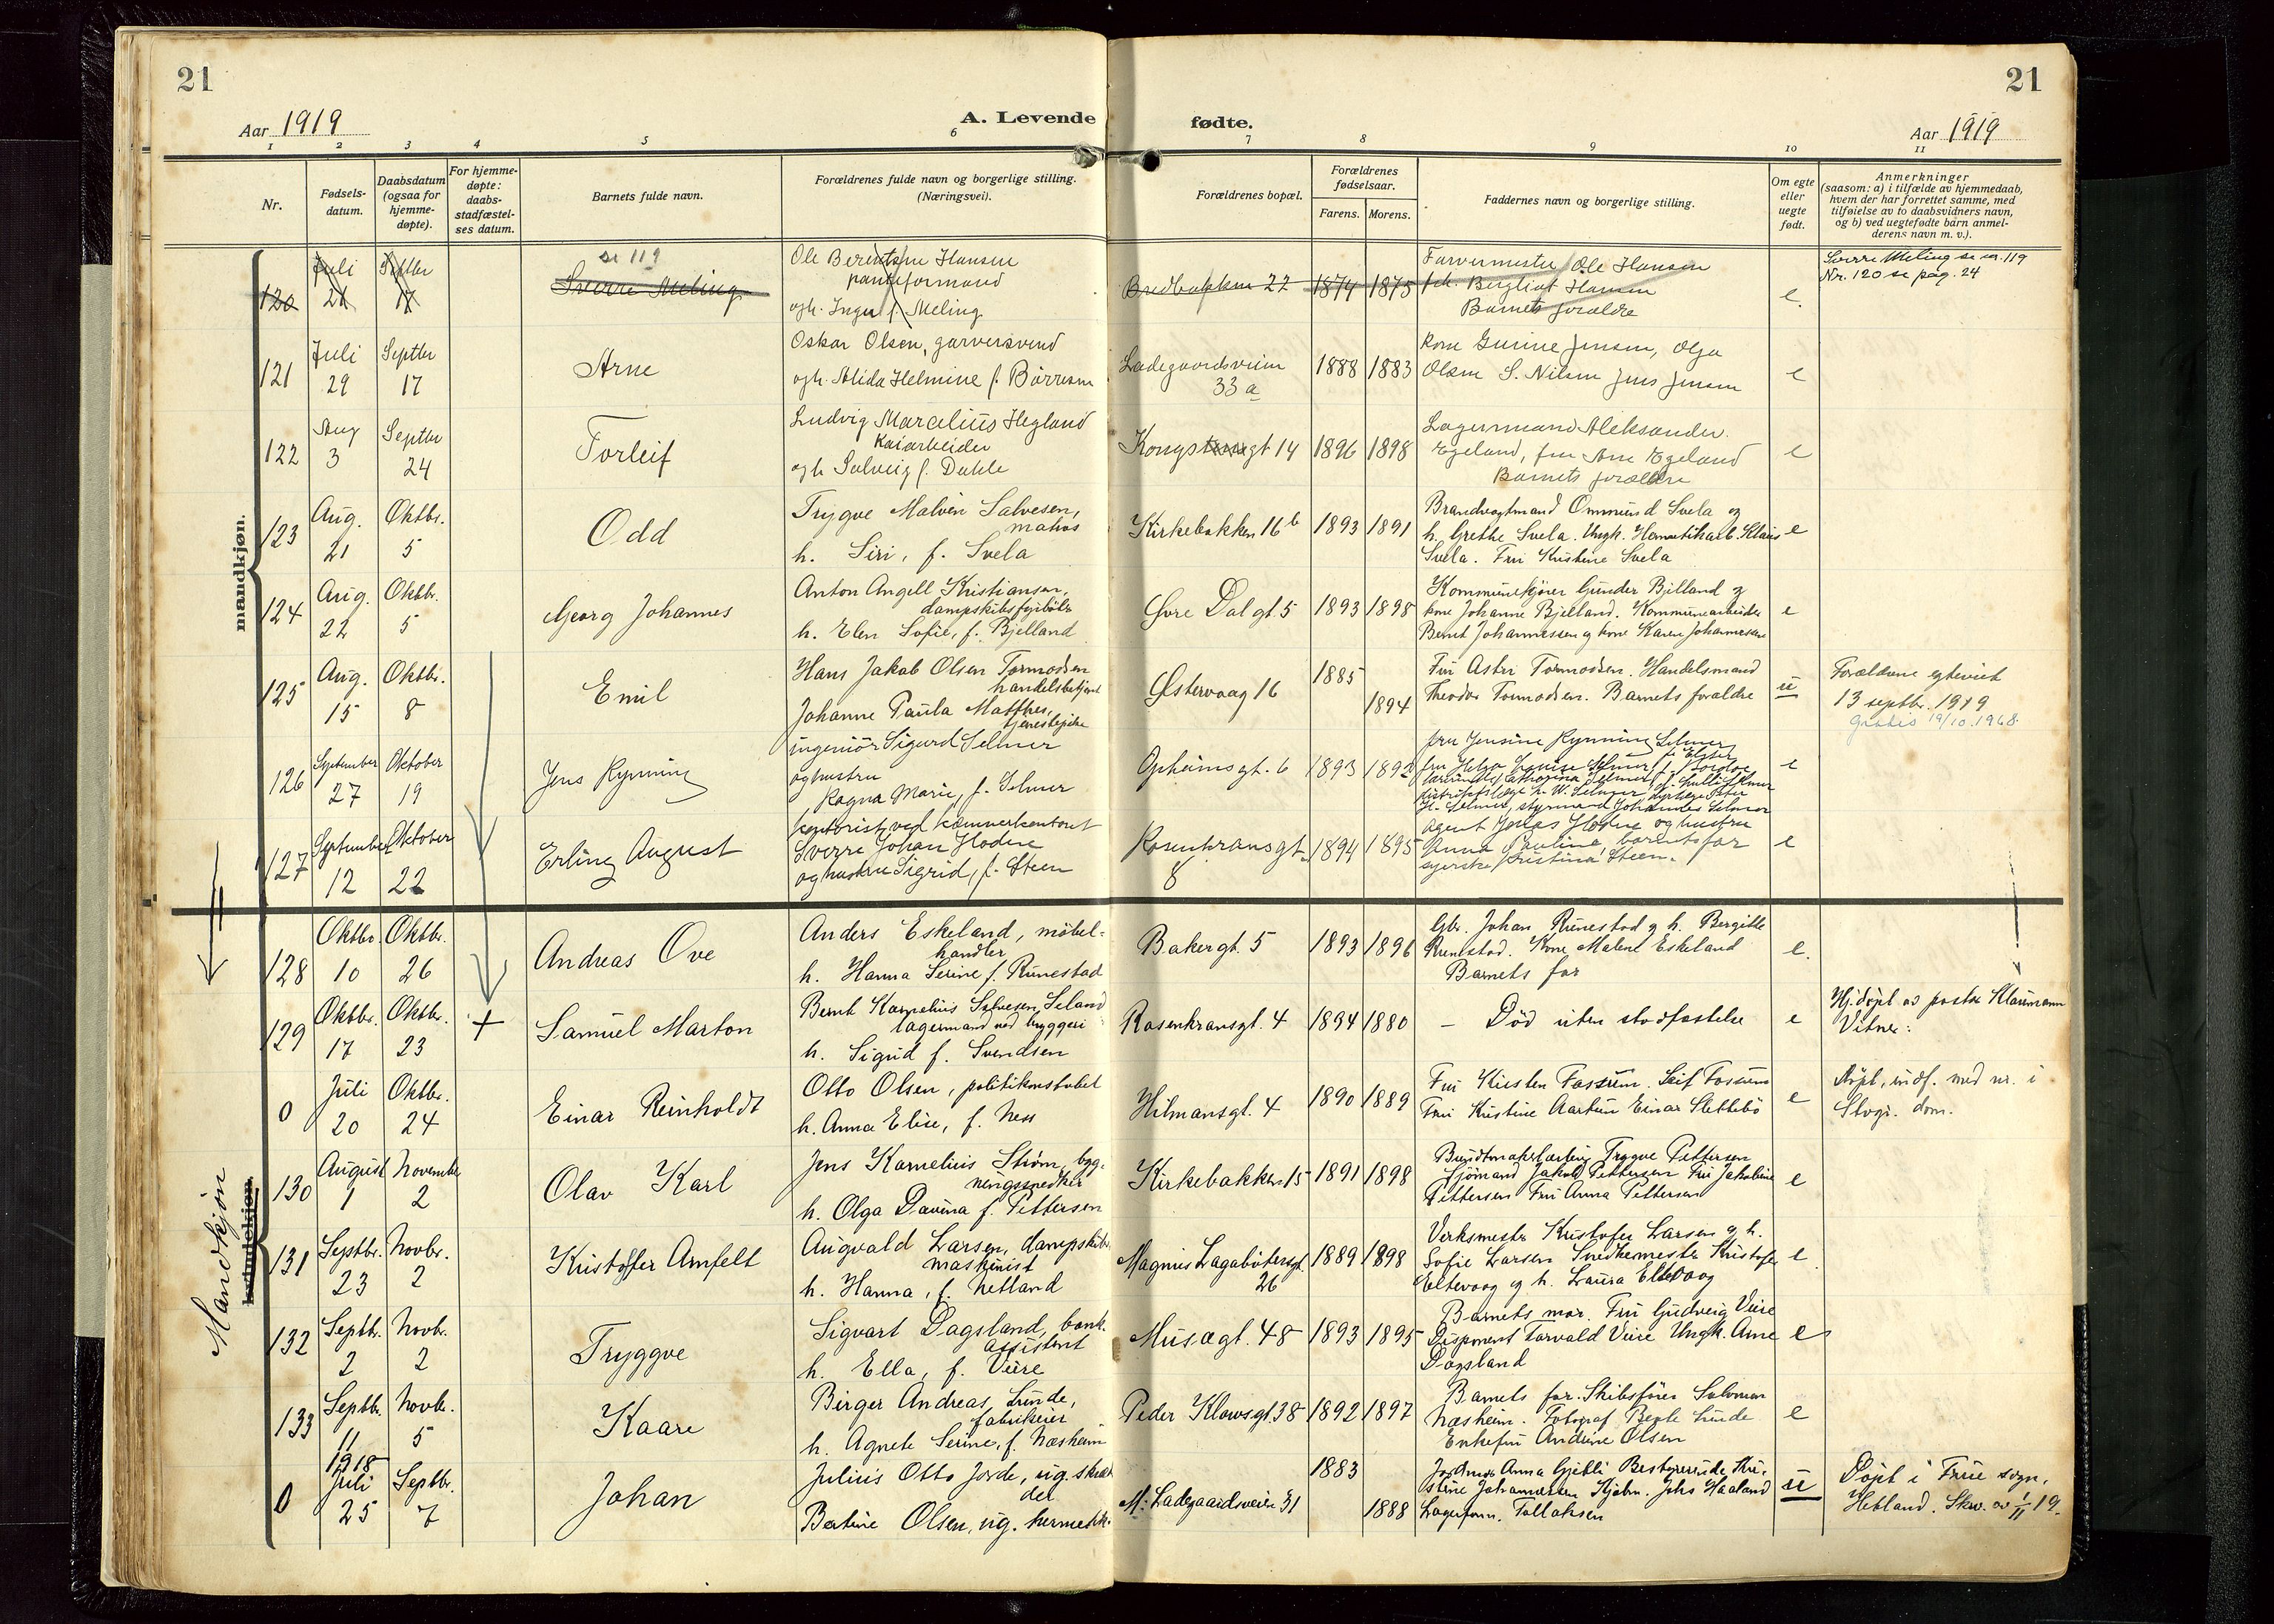 21
21
Aar 1919
A. Levende
fødte.
Aar 1919
1 2 3 4 5 6 7 8 9 10 11
Nr.
Fødsels-
datum.
Daabsdatum
(ogsaa for
hjemme-
døpte).
For hjemme-
døpte:
daabs-
stadfæstel-
ses datum.
Barnets fulde navn.
Forældrenes fulde navn og borgerlige stilling.
(Næringsvei).
Forældrenes bopæl.
Forældrenes
fødselsaar.
Farens. Morens.
Faddernes navn og borgerlige stilling.
Om egte
eller
uegte
født.
Anmerkninger
(saasom: a) i tilfælde av hjemmedaab,
hvem der har forrettet samme, med
tilføielse av to daabsvidners navn,
og b) ved uegtefødte barn anmel-
derens navn m. v.).
mandkjøn.
120
Juli
21
Septbr
17
se 119
Sverre Meling
Ole Berentsine Hansen
formand
ogh. Inga f. Meling
Bredbakken 22
1874 1875
Farvermester Ole Hansen
frk. Bergliot Hansen
Barnets forældre
e.
Sverre Meling se nr. 119
Nr. 120 se pag. 24
121
Juli
29
Septbr
17
Arne
Oskar Olsen, garversvend
ogh. Alida Helmine f. Børresen
Ladegaardsveien
33 a
1888 1883
Kone Gurine Jensen, Olga
Olsen S. Nilsen Jens Jensen
e
122
Aug
3
Septbr
24
Torleif
Ludvig Marcelius Hegland
Kaiarbeider
ogh Solveig f. Dahle
Kongsgt 14
1896 1898
Lagermand Aleksander
Egeland, fru Arne Egeland
Barnets forældre
e
123
Aug.
21
Oktbr.
5
Odd
Trygve Malvin Salvesen,
matros
h. Siri, f. Svela
Kirkebakken 16 b
1893 1891
Brandvagtmand Ommund Svela og
h. Grethe Svela. Ungk. Hermetikarb. Klaus
Svela. Fru Kristine Svela
e
124
Aug.
22
Oktbr.
5
Georg Johannes
Anton Angell Kristiansen,
dampskibsfyrbøter
h. Elen Sofie, f. Bjelland
Øvre Dalgt. 5
1893 1898
Kommunekjører Gunder Bjelland og
kone Johanne Bjelland. Kommunearbeider
Bernt Johannessen og kone Karen Johannessen
e
125
Aug.
15
Oktbr.
8
Emil
Hans Jakob Olsen Tormodsen
handelsbetjent
Johanne Paula Matthes,
tjenestepike
Østervaag 16
1885
1894
Fru Astri Tormodsen. Handelsmand
Theodor Tormodsen. Barnets forældre
u
Forældrene egteviet
13 septbr. 1919
Gratis 19/10.1968.
126
September
27
Oktober
19
Jens Rynning
ingeniør Sigurd Selmer
og hustru
Ragna Marie, f. Selmer
Opheimsgt. 6
1893 1892
fru Jensine Rynning Selmer
fru Helga Louise Selmer,
Cathagina Selmer,
distriktslæge W. Selmer, dyrlæge Peter
H. Selmer, styrmand Johannes Selmer
e
127
September
12
Oktober
22
Erling August
kontorist ved kæmnerkontoret
Sverre Johan Hodne
og hustru Sigrid, f. Steen
Rosenkransgt.
8
1894 1895
Agent Jonas Hodne og hustru
Anna Pauline, barnets far
Kristina Steen.
e
Mandkjøn
kvindekjøn.
128
Oktbr
10
Oktbr.
26
Andreas Ove
Anders Eskeland, møbel-
handler
h. Hanna Serine f. Runestad
Bakergt. 5
1893 1896
Gbr. Johan Runestad og h. Bergitte
Runestad. Kone Malene Eskeland
Barnets far
e.
129
Oktbr.
17
Oktbr.
23
+
Samuel Marton
Bernt Kornelius Salvesen Seland
lagermand ved bryggeri
h. Sigrid f. Svendsen
Rosenkransgt. 4
1894 1880
– Død uten stadfæstelse
e
Hj.døpt av pastor Klausmann
Vitner:
0
Juli
20
Oktbr.
24
Einar Reinholdt
Otto Olsen, politikonstabel
h. Anna Elise, f. Ness
Hilmansgt. 4
1890 1889
Fru Kirsten Fossum. Leif Fossum
Fru Kristine Aartun Einar Slettebø
e
Døpt, indf. med nr. i
Stvgr. dom.
130
August
1
November
2
Olav Karl
Jens Kornelius Strøm, byg-
ningssnedker
h. Olga Davina f. Pettersen
Kirkebakken 15
1891 1898
Bundtmakerlærling Trygve Pettersen
Sjømand Jakob Pettersen Fru Jakobine
Pettersen Fru Anna Pettersen
e
131
Septbr.
23
Novbr.
2
Kristoffer Arnfelt
Augvald Larsen, dampskibs
maskinist
h. Hanna, f. Netland
Magnus Lagabøtersgt.
26
1889 1898
Verksmester Kristofer Larsen og h.
Sofie Larsen Snedkermester Kristofer
Eltevaag og h. Laura Eltevaag
e
132
Septbr.
2
Novbr.
2
Tryggve
Sigvart Dagsland, bank-
assistent
h. Ella, f. Veire
Musægt. 48
1893 1895
Barnets mor. Fru Gudveig Veire
Disponent Torvald Veire Ungk. Arne
Dagsland
e
133
Septbr.
11
Novbr.
5
Kaare
Birger Andreas Lunde,
fabrikeier
h. Agnete Serine, f. Næsheim
Peder Klowsgt. 38
1892 1897
Barnets far. Skibsfører Salomon
Næsheim. Fotograf Berte Lunde
Enkefru Andrine Olsen
e
0
1918
Juli
25
Septbr.
7
Johan
Julius Otto Jorde, ug. skræd
der
Bertine Olsen, ug. hermetik.
M. Ladegaardsveien 31
1883
1888
Jordmor Anna Gjetli Bestyrerinde Kri-
stine Johannessen Kjøbm. Johs Haaland
Lagerform. Tollaksen
u
Døpt i Frue sogn.
Hetland. Skr. av 1/11 19.